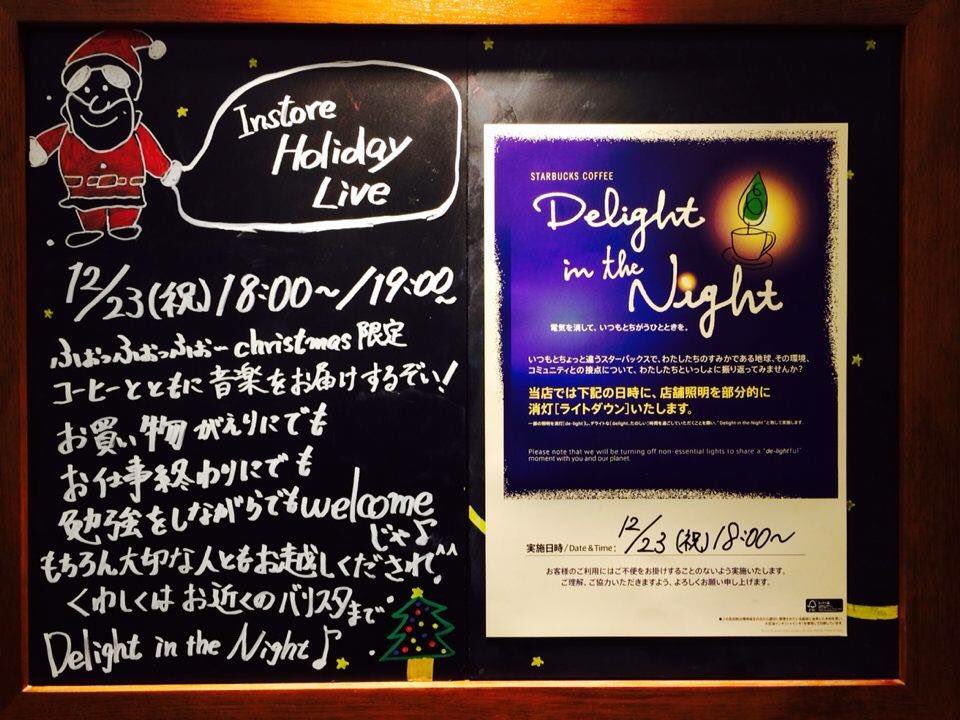 Instore
Holiday
Live
12/23(祝)18:00〜/19:00〜
ふぉっふぉっふぉー christmas 限定
コーヒーとともに音楽をお届けするぞい!
お買い物がえりにでも
お仕事終わりにでも
勉強をしながらでもwelcome
じゃ♪
もちろん大切な人ともお越しくだされ^^
くわしくはお近くのバリスタまで
Delight in the Night♪
STARBUCKS COFFEE
Delight
in the
Night
電気を消して、いつもとちがうひとときを。
いつもとちょっと違うスターバックスで、わたしたちのすみかである地球、その環境、
コミュニティとの接点について、わたしたちといっしょに振り返ってみませんか?
当店では下記の日時に、店舗照明を部分的に
消灯[ライトダウン]いたします。
一部の照明を消灯(de-light)し、デライトな(delight、たのしい)時間を過ごしていただくことを願い、"Delight in the Night"と称して実施します。
Please note that we will be turning off non-essential lights to share a "de-lightful"
moment with you and our planet
実施日時/Date & Time: 12/23(祝)18:00〜
お客様のご利用にはご不便をお掛けすることのないよう実施いたします。
ご理解、ご協力いただきますよう、よろしくお願い申し上げます。